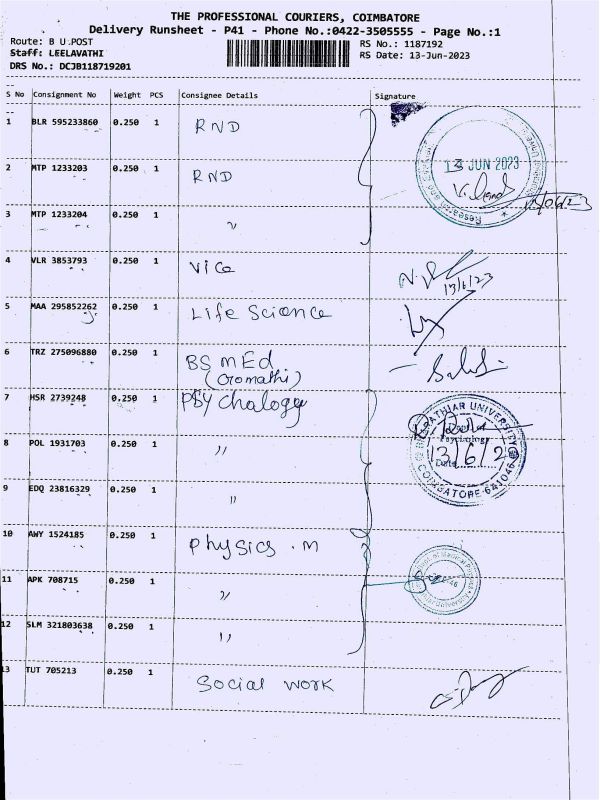 THE PROFESSIONAL COURIERS, COIMBATORE
Delivery Runsheet - P41 - Phone No.:0422-3505555 - Page No.:1
Route: B U POST
RS No.: 1187192
Staff: LEELAVATHI
RS Date: 13-Jun-2023
DRS No.: DCJB118719201
S No Consignment No Weight PCS Consignee Details Signature
1 BLR 595233860 0.250 1 RND
13 JUN 2023
2 MTP 1233203 0.250 1 RND
3 MTP 1233204 0.250 1 "
4 VLR 3853793 0.250 1 Vice
13/6/23
5 MAA 295852262 0.250 1 Life Science
6 TRZ 275096880 0.250 1 BS mEd
(Oromathi)
7 HSR 2739248 0.250 1 PSYchalogy
BHARATHIAR UNIVERSITY
Psychology
Date 13/6/2
COIMBATORE-641046
8 POL 1931703 0.250 1 "
9 EDQ 23816329 0.250 1 "
10 AWY 1524185 0.250 1 Physics . M
11 APK 708715 0.250 1 "
12 SLM 321803638 0.250 1 "
13 TUT 705213 0.250 1 Social work